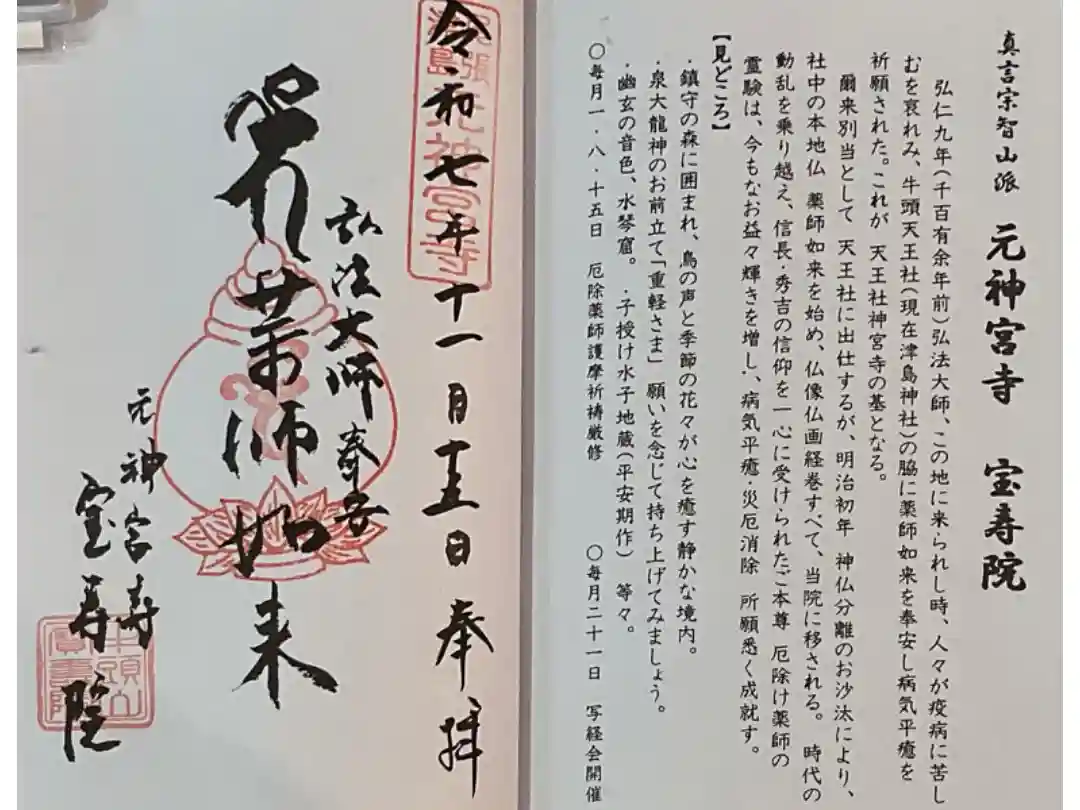 真言宗智山派 元神宮寺 宝寿院
弘仁九年(千百有余年前)弘法大師、この地に来られし時、人々が疫病に苦し
むを哀れみ、牛頭天王社(現在津島神社)の脇に薬師如来を奉安し病気平癒を
祈願された。これが 天王社神宮寺の基となる。
爾来別当として 天王社に出仕するが、明治初年 神仏分離のお沙汰により、
社中の本地仏 薬師如来を始め、仏像仏画経巻すべて、当院に移される。 時代の
動乱を乗り越え、信長・秀吉の信仰を一心に受けられたご本尊 厄除け薬師の
霊験は、今もなお益々輝きを増し、病気平癒・災厄消除 所願悉く成就す。
【見どころ】
・鎮守の森に囲まれ、鳥の声と季節の花々が心を癒す静かな境内。
・泉大龍神のお前立て「重軽さま」 願いを念じて持ち上げてみましょう。
・幽玄の音色、水琴窟。 ・子授け水子地蔵(平安期作) 等々。
〇毎月一・八・十五日 厄除薬師護摩祈祷厳修 〇毎月二十一日 写経会開催
令和七年十一月十五日 奉拝
尾張津島元神宮寺
弘法大師奉安
薬師如来
元神宮寺
宝寿院